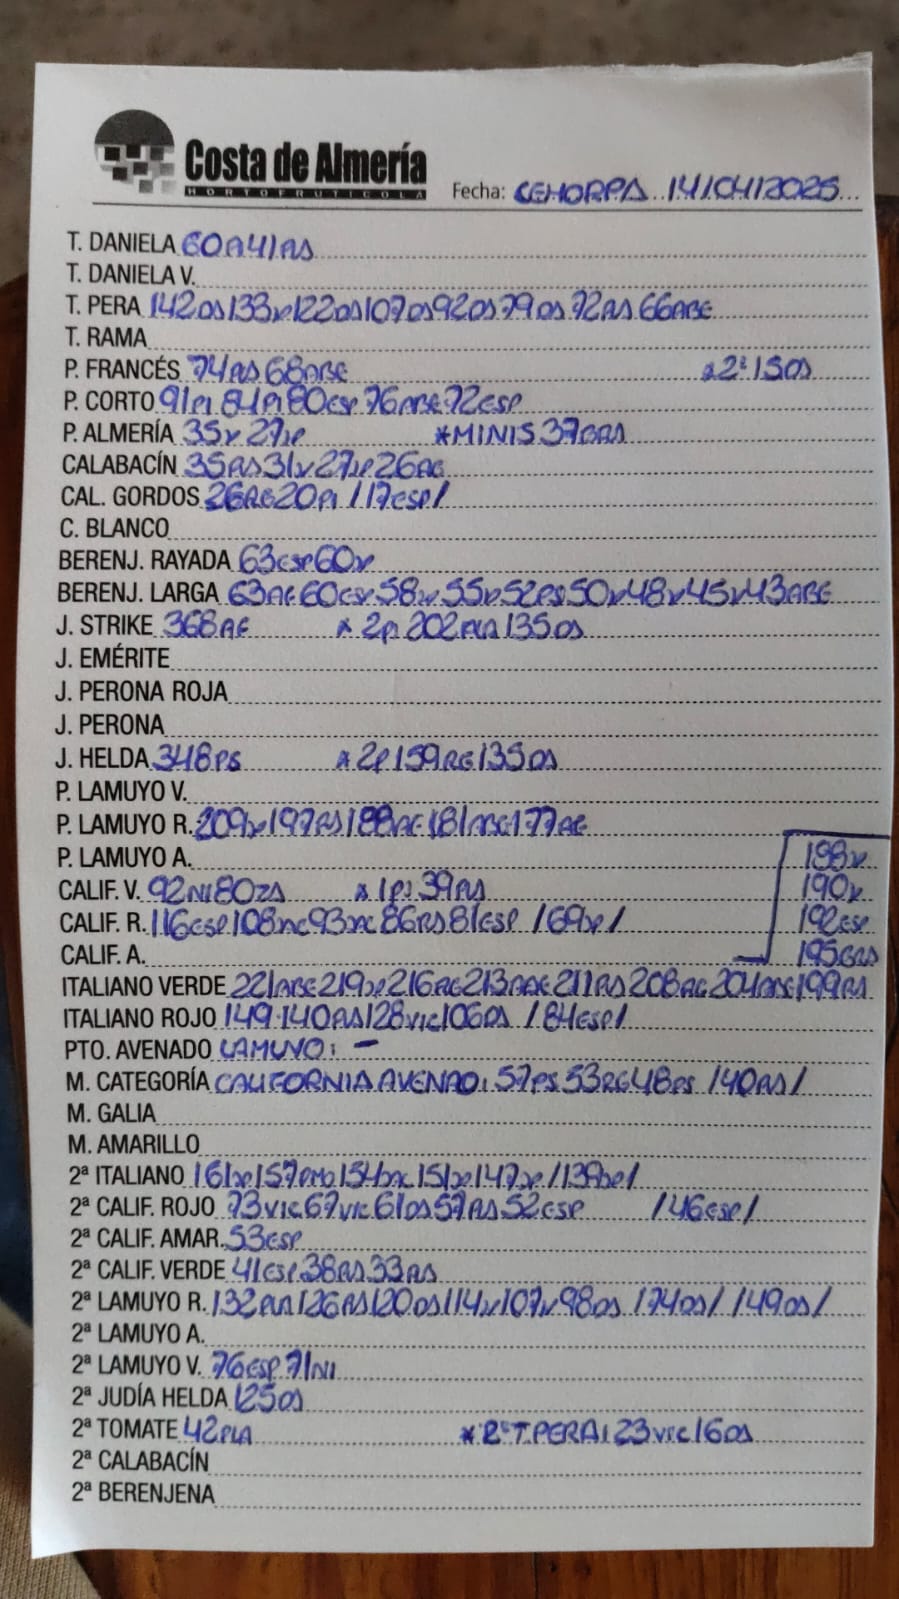 Costa de Almería
HORTOFRUTICOLA
Fecha: CEHORPA 14/04/2025
T. DANIELA 60AG41AS
T. DANIELA V.
T. PERA 142OS133V122OS107OS92OS79OS72AS66ABE
T. RAMA
P. FRANCÉS 74AS68ABE *2ª15OS
P. CORTO 91PI84PI80ESP76ABE72ESP
P. ALMERÍA 35V27JP *MINIS37GRS
CALABACÍN 35AS31V27JP26AG
CAL. GORDOS 26AG20PI/17ESP/
C. BLANCO
BERENJ. RAYADA 63ESP60V
BERENJ. LARGA 63AG60ESP58V55V52PS50V48V45V43ABE
J. STRIKE 368AG *2ª:202PLA135OS
J. EMÉRITE
J. PERONA ROJA
J. PERONA
J. HELDA 348PS *2ª159AG135OS
P. LAMUYO V.
P. LAMUYO R. 209V197AS188AG181ABE177AG
P. LAMUYO A. 188V
CALIF. V. 92NI80ZS *1P:39AS 190V
CALIF. R. 116ESP108 93 86AS81ESP /69JP/ 192ESP
CALIF. A. 195GRS
ITALIANO VERDE 221ABE219JP216AG213 211AS208AG204ABE199AS
ITALIANO ROJO 149·140AS128VIC106OS /84ESP/
PTO. AVENADO LAMUYO: -
M. CATEGORÍA CALIFORNIA AVENAO: 57PS53AG48PS /40AS/
M. GALIA
M. AMARILLO
2ª ITALIANO 161JP157 154 151JP147JP/139JP/
2ª CALIF. ROJO 73VIC67VIC61OS57AS52ESP /46ESP/
2ª CALIF. AMAR. 53ESP
2ª CALIF. VERDE 41ESP38AS33AS
2ª LAMUYO R. 132PLA126AS120OS114V107V98OS /74OS/ /49OS/
2ª LAMUYO A.
2ª LAMUYO V. 76ESP71NI
2ª JUDÍA HELDA 125OS
2ª TOMATE 42PLA *2ªT.PERA:23VIC16OS
2ª CALABACÍN
2ª BERENJENA